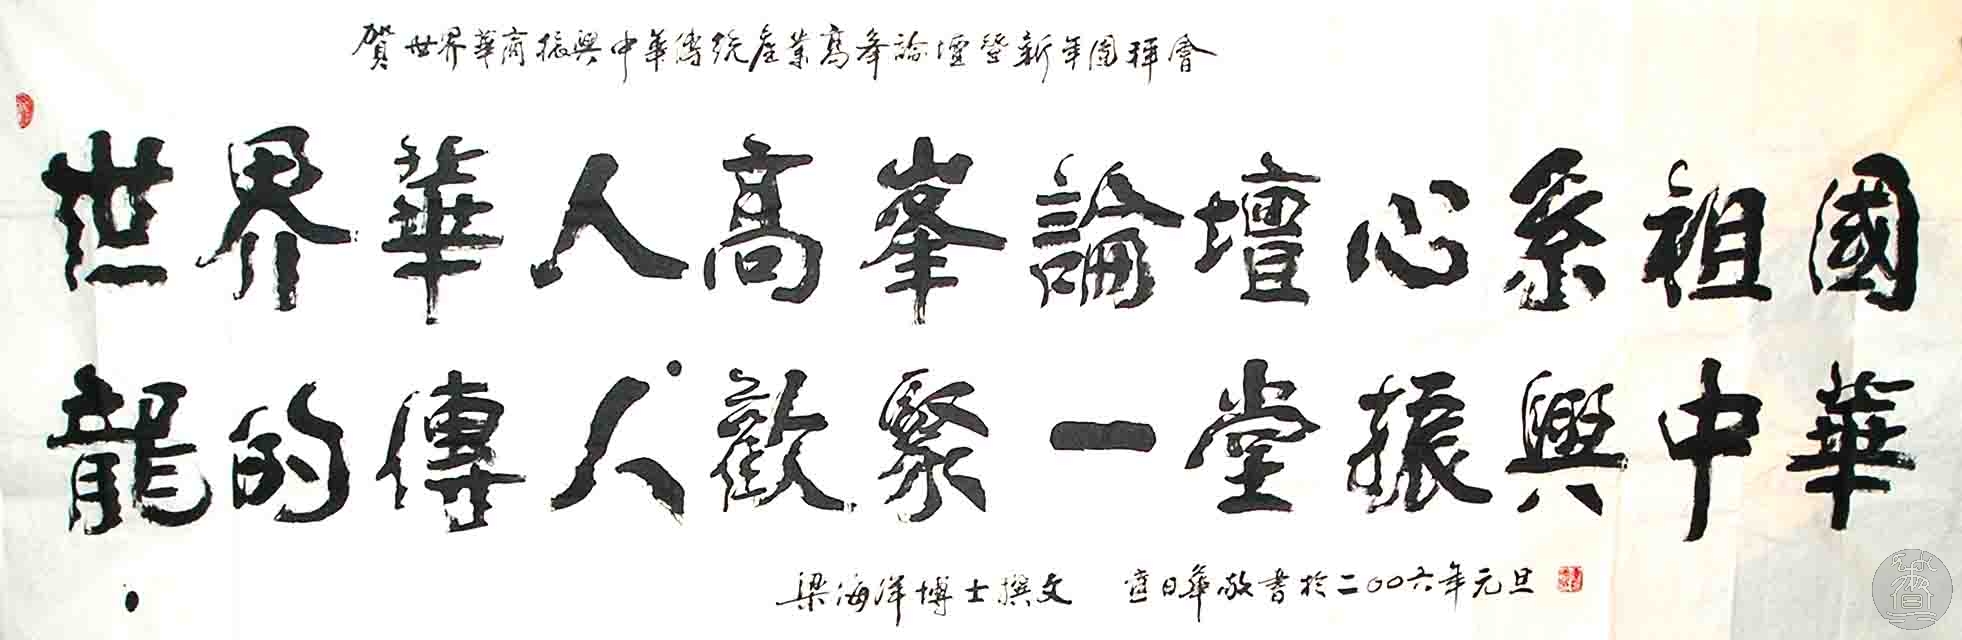 贺世界華商振興中華傳统產業高峯論壇暨新年團拜會
世界華人高峯論壇心系祖國
龍的傳人歡聚一堂振興中華
梁海洋博士撰文 日華敬書於二〇〇六年元旦